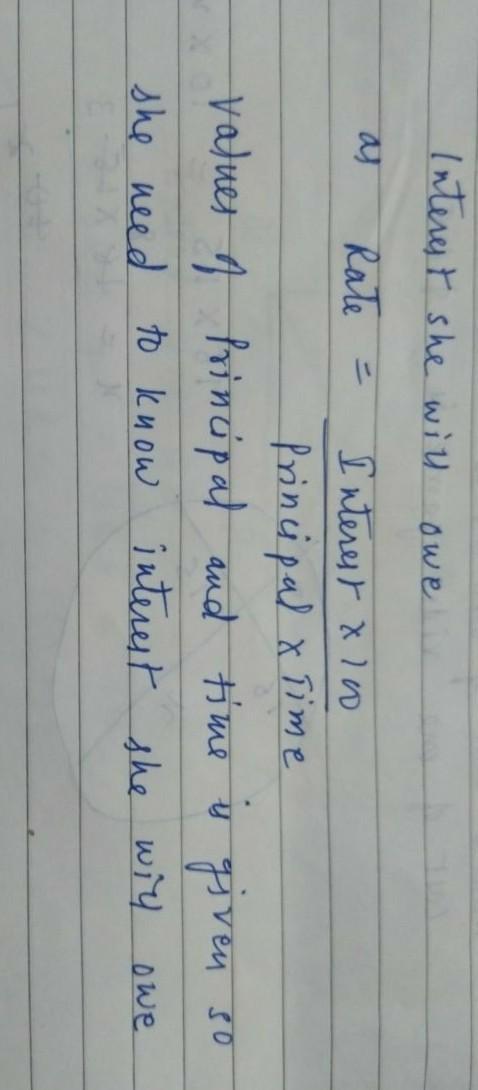 Interest she will owe
as Rate = Interest x 100
Principal x Time
values of Principal and time is given so
she need to know interest she will owe